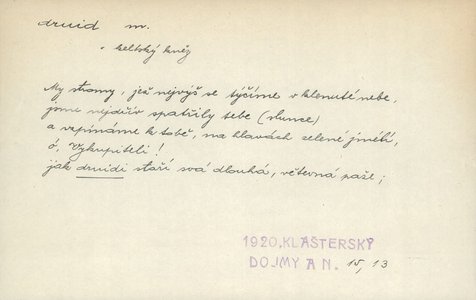 druid m.
- keltský kněz
My stromy, jež nejvýš se týčíme v klenuté nebe,
jsme nejdřív spatřily tebe (slunce)
a vzpínáme k tobě, na hlavách zelené jmélí,
ó, Vykupiteli!
jak druidi staří svá dlouhá, větevná paže;
1920, KLÁŠTERSKÝ
DOJMY A N. 15, 13